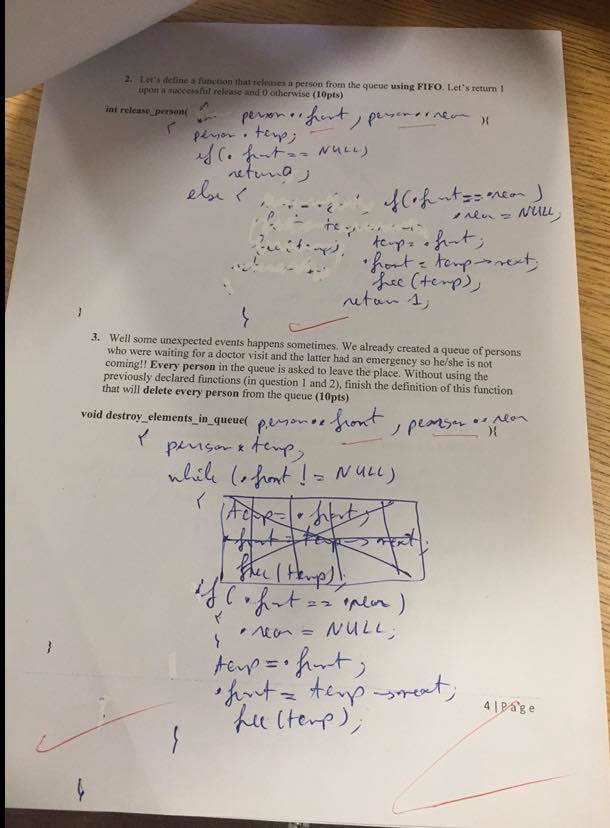 2. Let's define a function that releases a person from the queue using FIFO. Let's return 1
upon a successful release and 0 otherwise (10pts)
int release_person( person ** front, person ** rear ){
{ person * temp;
if (* front == NULL)
return 0;
else { if (* front == * rear)
* rear = NULL;
free (temp); temp = * front;
* front = temp → next;
free (temp);
return 1;
}
}
3. Well some unexpected events happens sometimes. We already created a queue of persons
who were waiting for a doctor visit and the latter had an emergency so he/she is not
coming!! Every person in the queue is asked to leave the place. Without using the
previously declared functions (in question 1 and 2), finish the definition of this function
that will delete every person from the queue (10pts)
void destroy_elements_in_queue( person ** front, pearson ** rear ){
{ person * temp;
while (* front != NULL)
{
temp = * front;
* front = temp → next;
free (temp);
if (* front == * rear)
{
* rear = NULL;
}
temp = * front;
}
* front = temp → next;
4 | Page
free (temp);
}
}